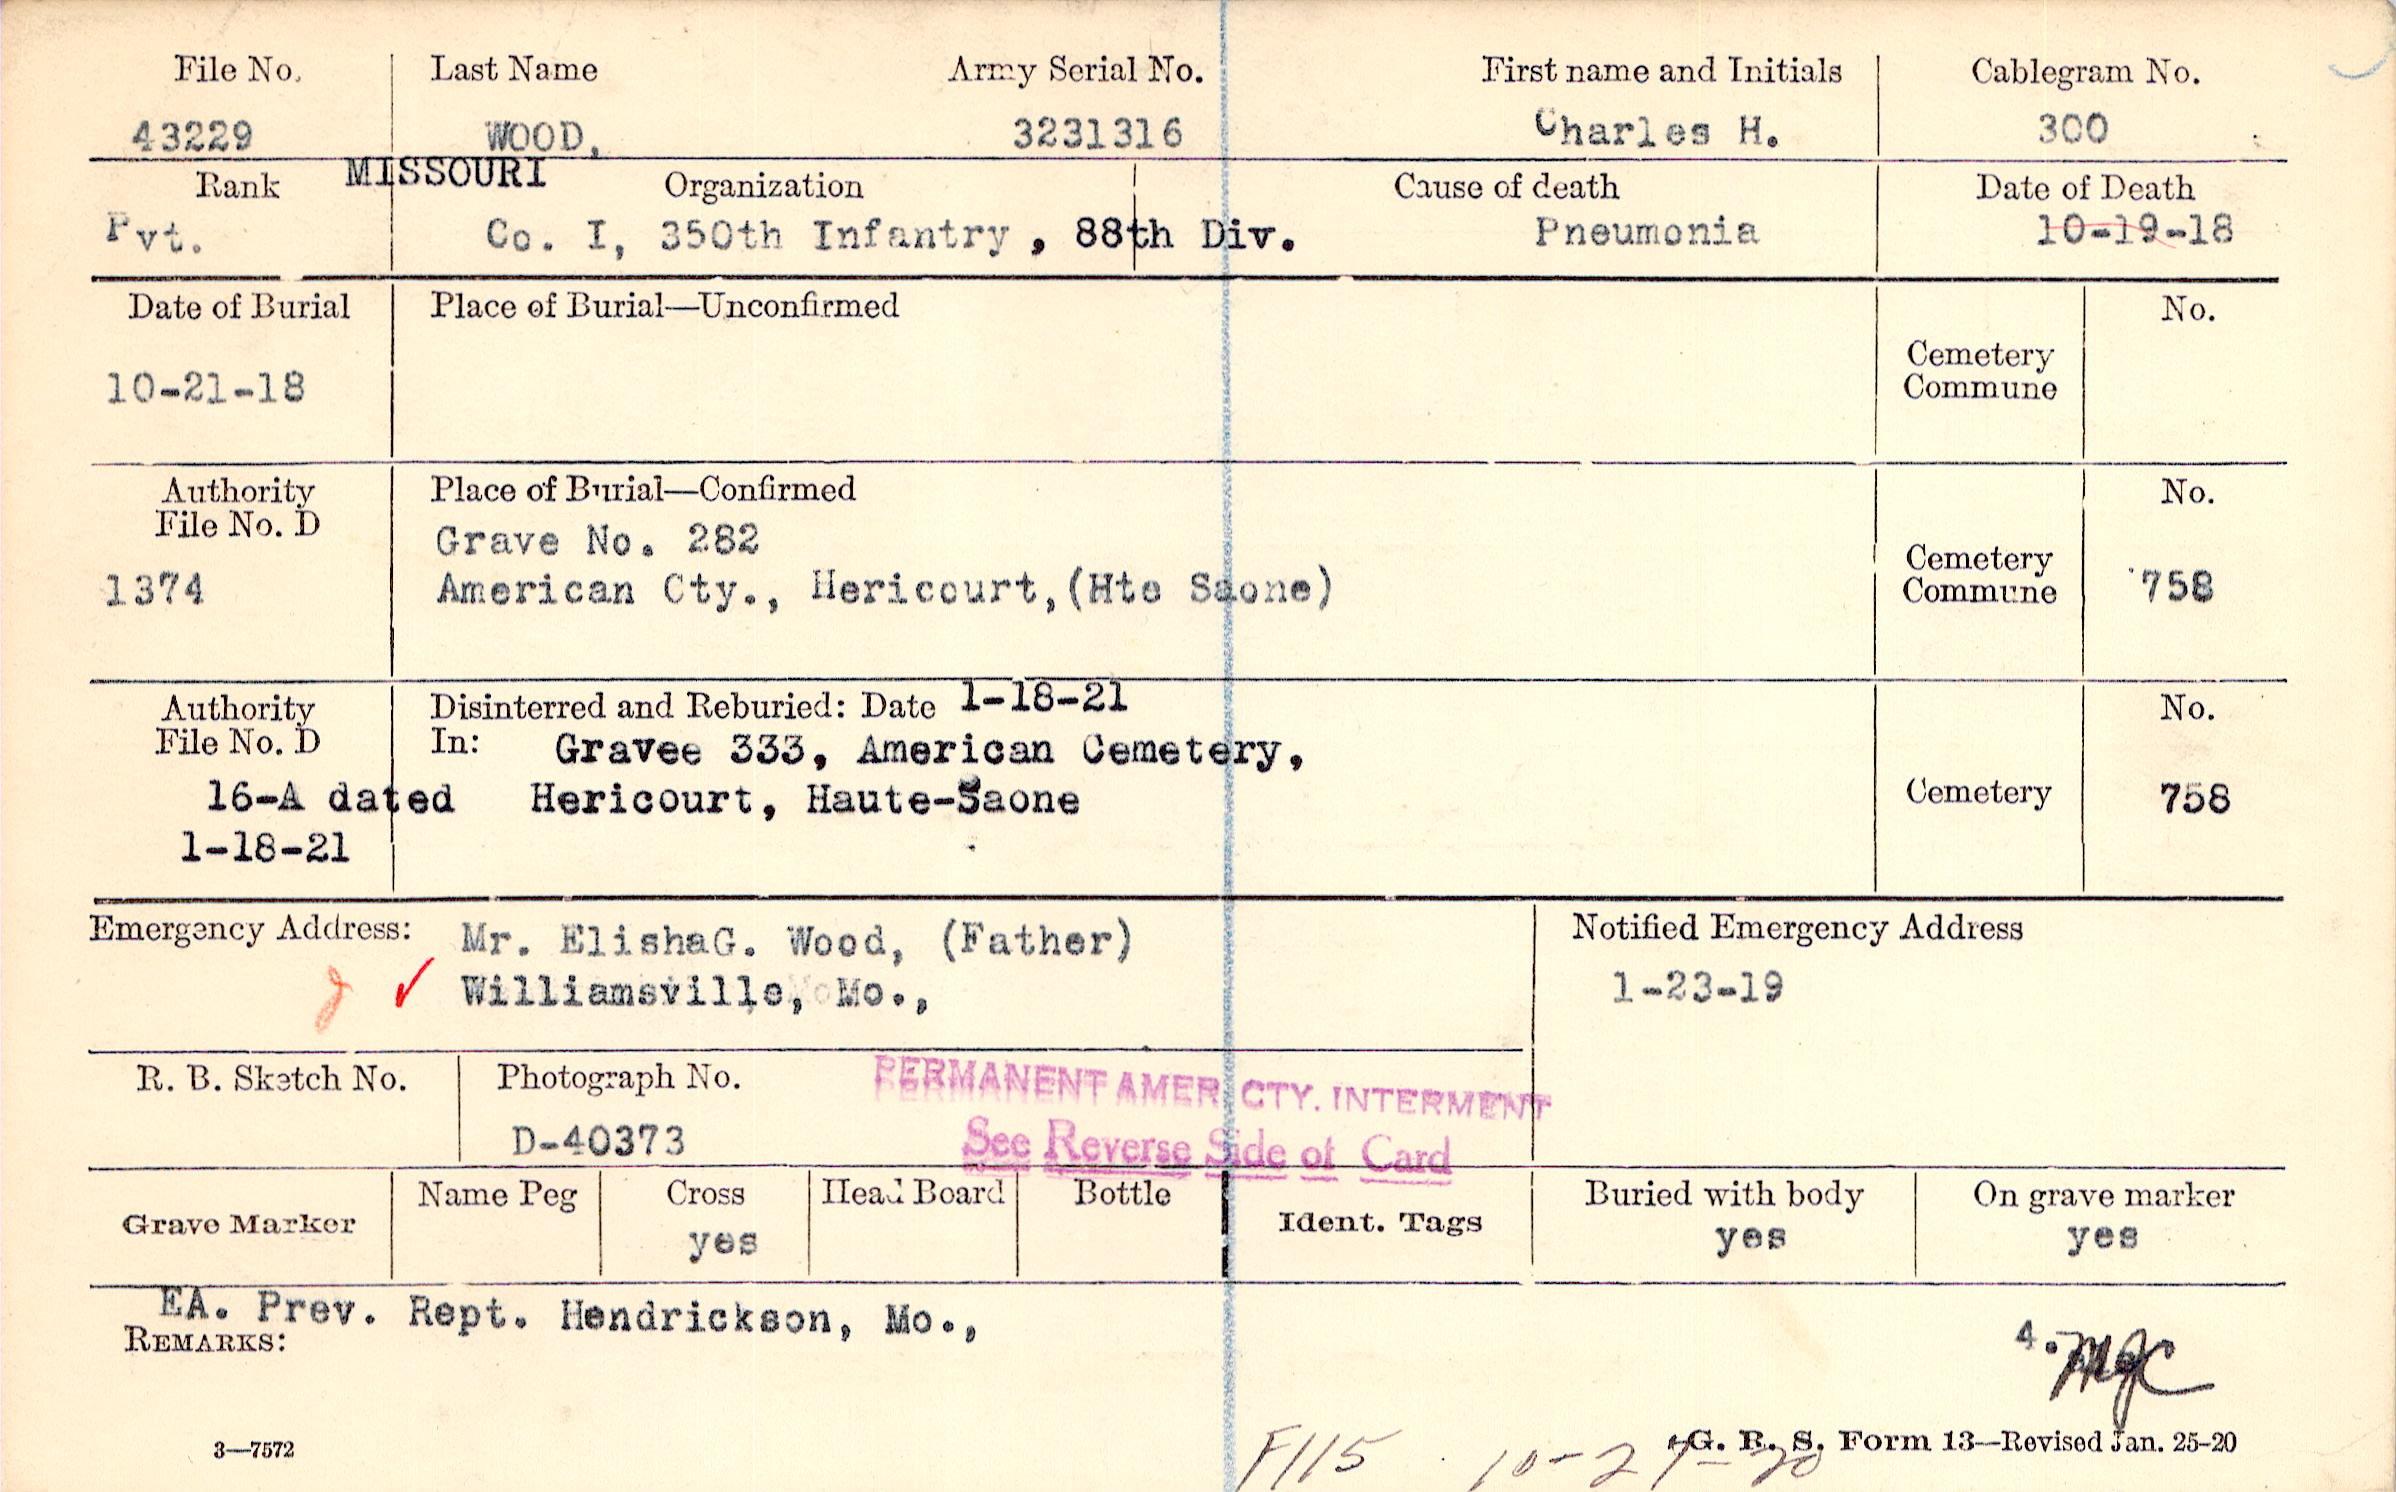 File No. Last Name Army Serial No. First name and Initials Cablegram No.
43229 WOOD, 3231316 Charles H. 300
MISSOURI
Rank Organization Cause of death Date of Death
Pvt. Co. I, 350th Infantry, 88th Div. Pneumonia 10-19-18
Date of Burial Place of Burial—Unconfirmed No.
Cemetery
Commune
10-21-18
Authority Place of Burial—Confirmed No.
File No. D
Grave No. 282
Cemetery
Commune
1374 American Cty., Hericourt,(Hte Saone) 758
Authority Disinterred and Reburied: Date 1-18-21 No.
File No. D In: Gravee 333, American Cemetery,
16-A dated Hericourt, Haute-Saone Cemetery 758
1-18-21
Emergency Address: Mr. ElishaG. Wood, (Father) Notified Emergency Address
Williamsville, Mo., 1-23-19
R. B. Sketch No. Photograph No. PERMANENT AMER CTY. INTERMENT
D-40373 See Reverse Side of Card
Grave Marker Name Peg Cross Head Board Bottle Ident. Tags Buried with body On grave marker
yes yes yes
EA. Prev. Rept. Hendrickson, Mo.,
REMARKS:
4. MJC
3—7572 G. R. S. Form 13—Revised Jan. 25-20
F115 10-27-20